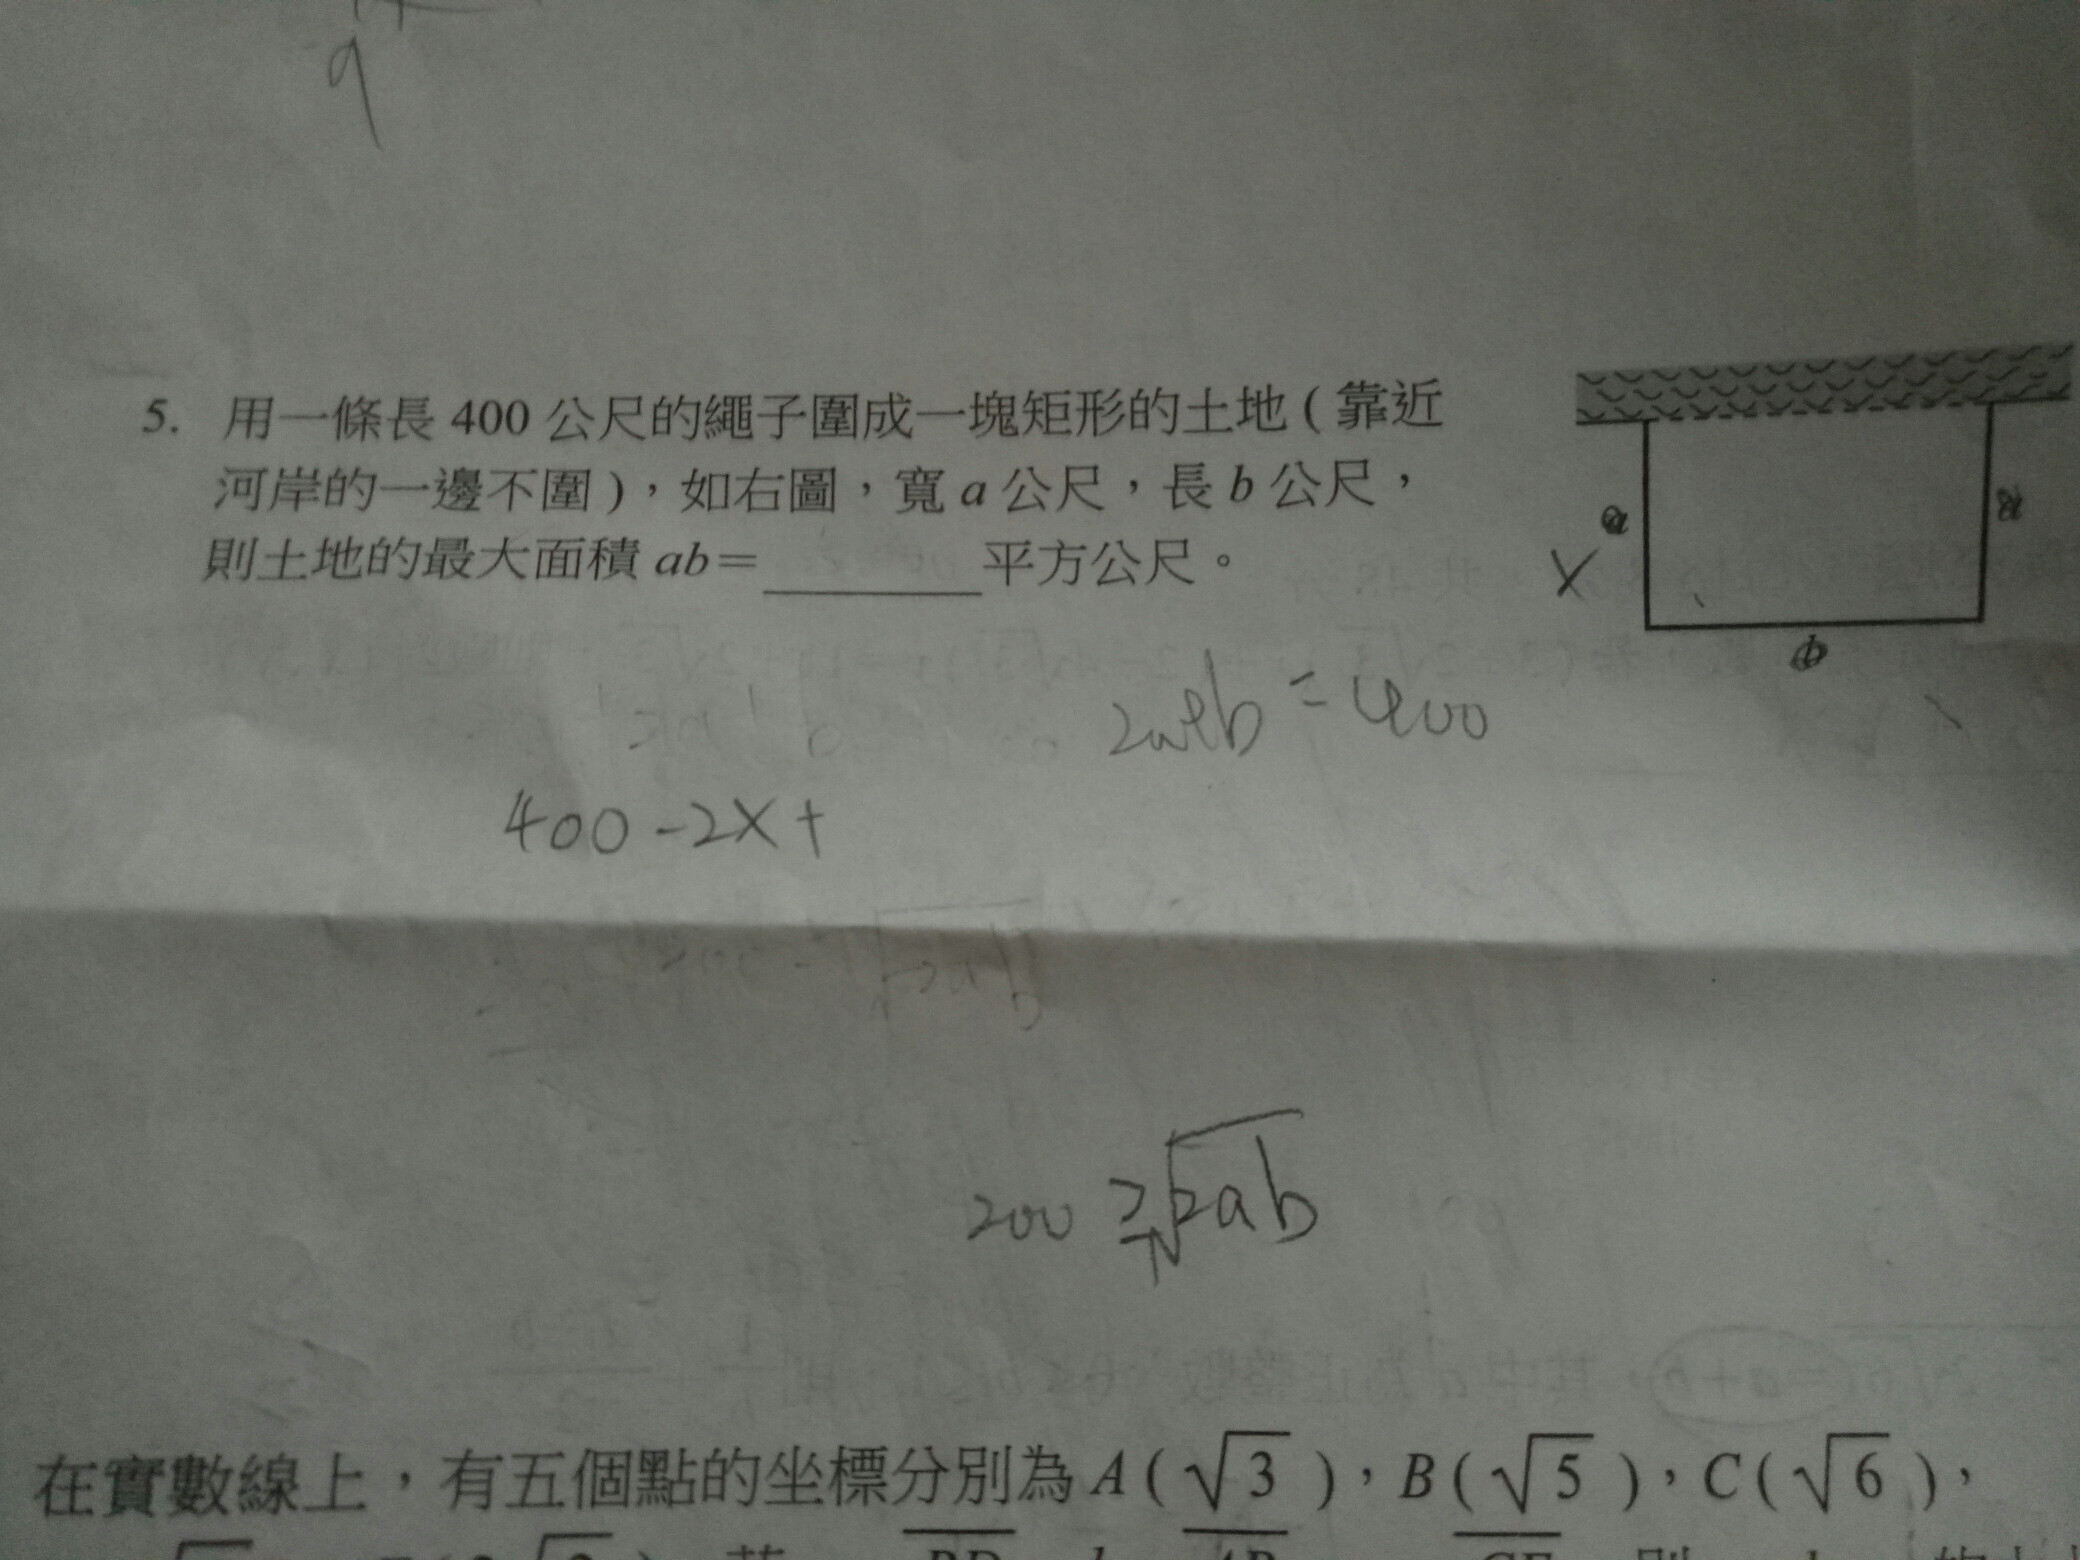 9
5. 用一條長 400 公尺的繩子圍成一塊矩形的土地 ( 靠近
河岸的一邊不圍 )，如右圖，寬 a 公尺，長 b 公尺，
則土地的最大面積 ab=______平方公尺。
X
2a+b=400
400-2X+
200 ≥ √2ab
在實數線上，有五個點的坐標分別為 A ( √3 )，B ( √5 )，C ( √6 )，